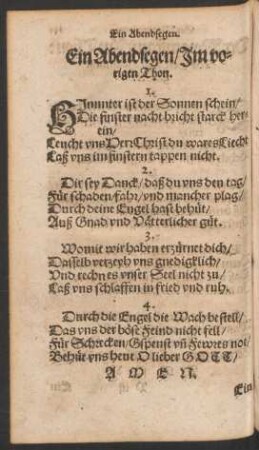 Ein Abendsegen.
Ein Abendsegen/Jm vo-
rigen Thon.
1.
HJnnter ist der Sonnen schein/
Die finster nacht bricht starck her-
ein/
Leucht vns HErr Christ du wares Liecht
Laß vns im finstern tappen nicht.
2.
Dir sey Danck/daß du vns den tag/
Für schaden/fahr/vnd mancher plag/
Durch deine Engel hast behüt/
Auß Gnad vnd Vätterlicher güt.
3.
Womit wir haben erzürnet dich/
Dasselb verzeyh vns gnediglich/
Vnd rechn es vnser Seel nicht zu/
Laß vns schlaffen in fried vnd ruh.
4.
Durch die Engel die Wach bestell/
Das vns der böse Feind nicht fell/
Für Schrecken/Gspenst vñ Fewres not
Behüt vns heut O lieber GOTT/
AMEN.
Ein